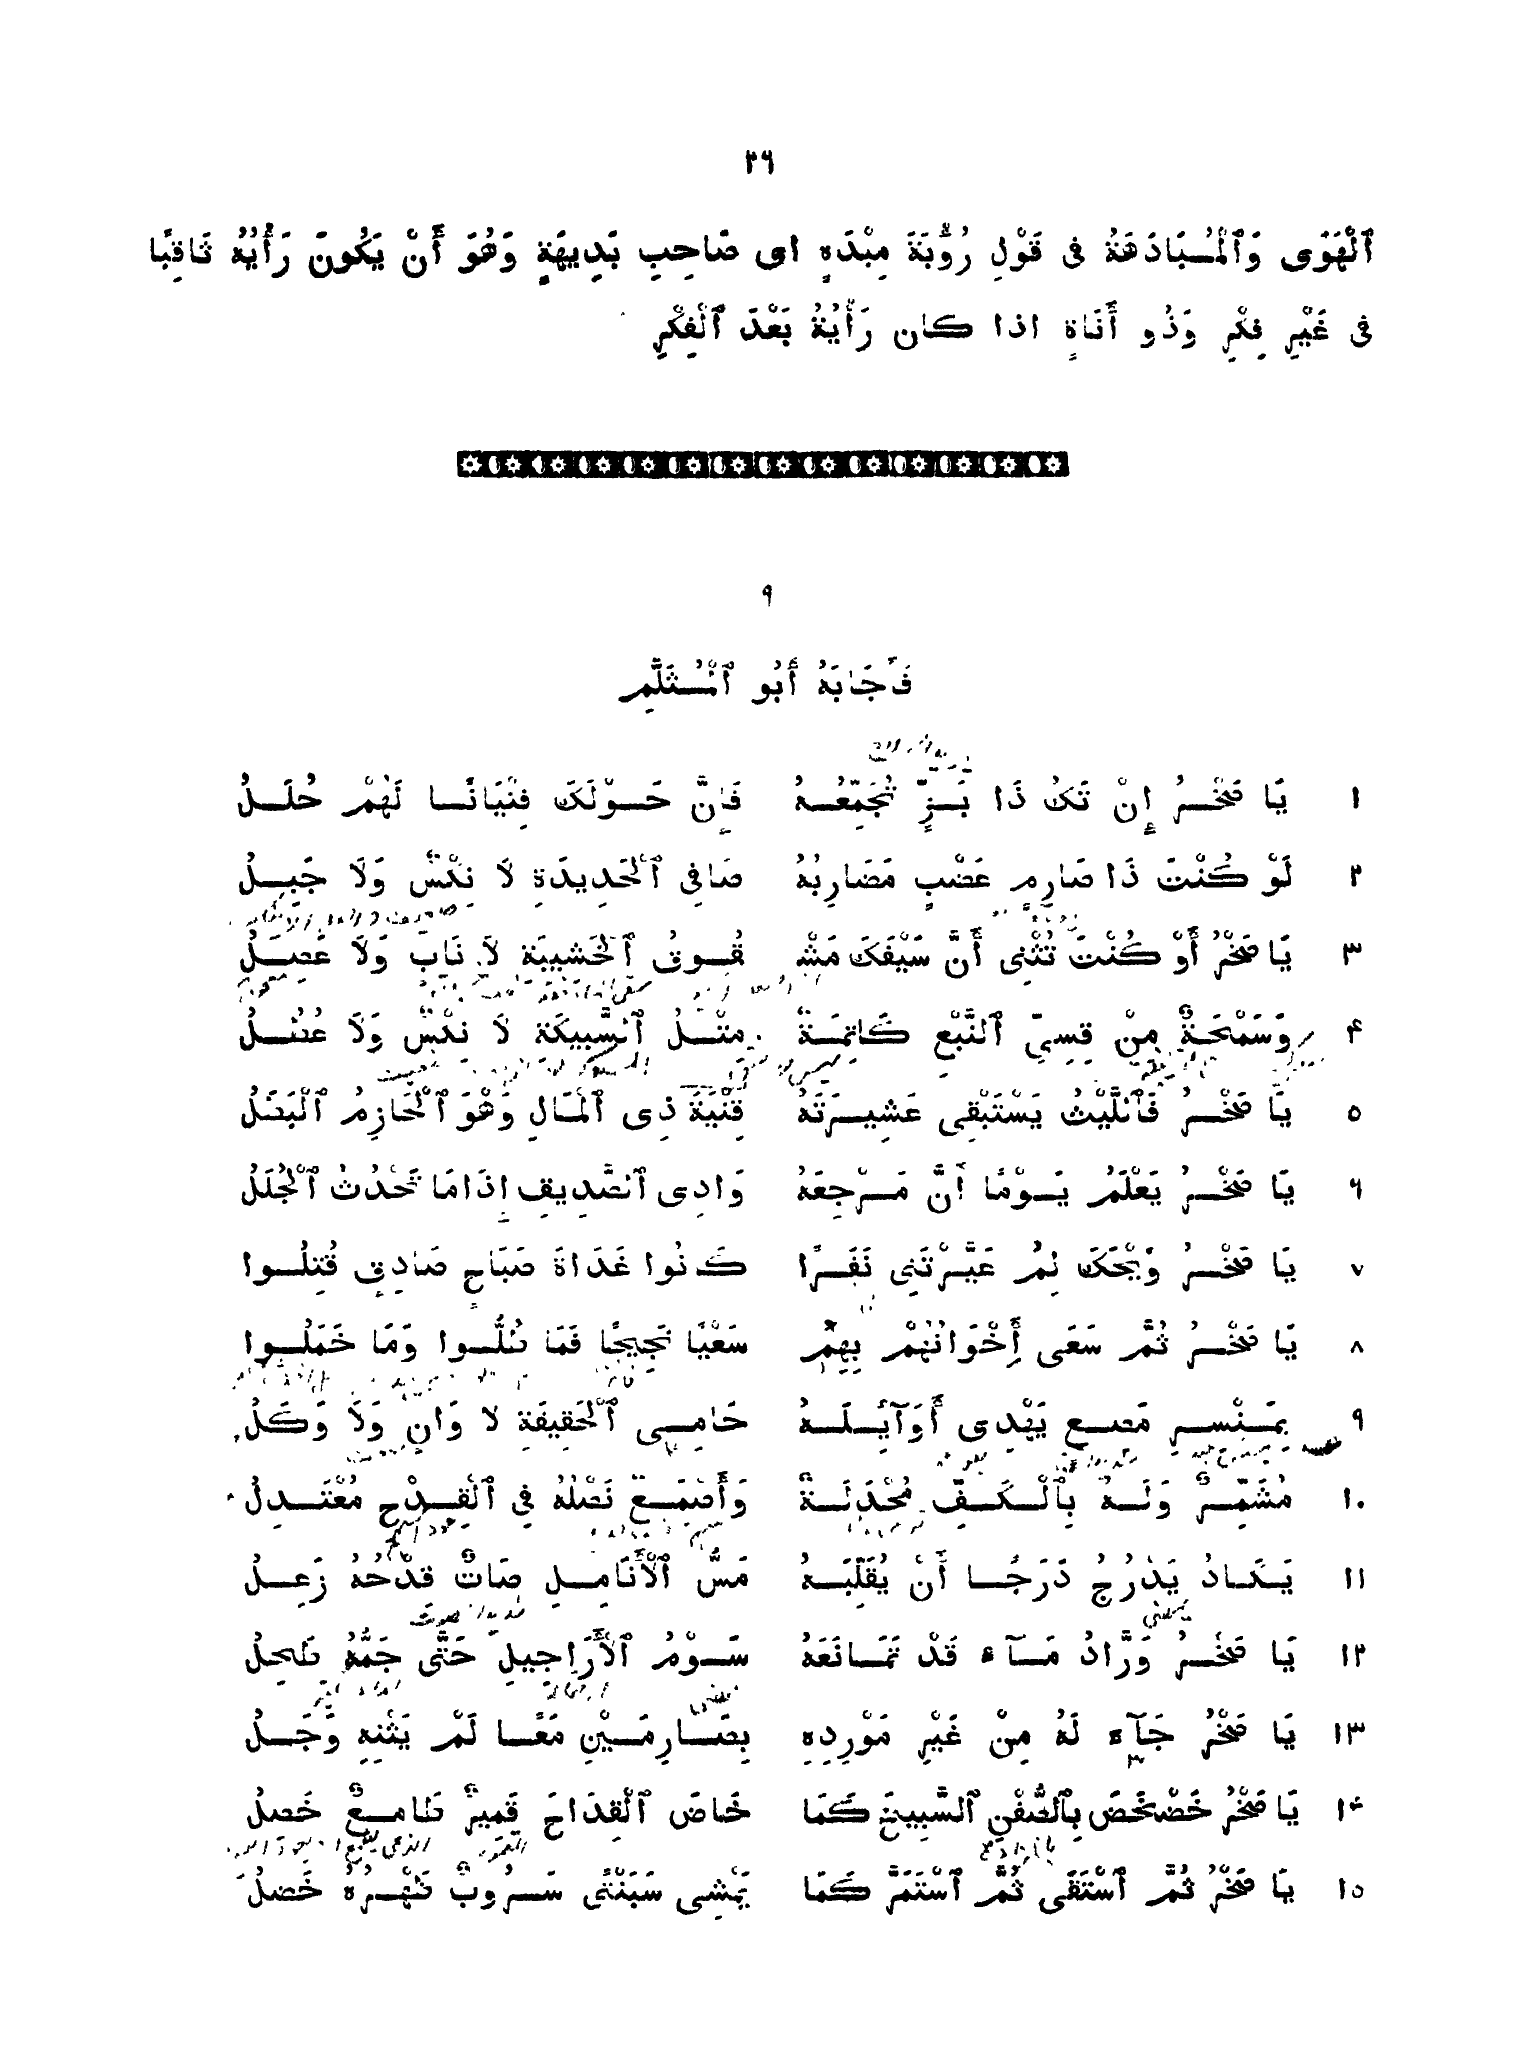 ٢٦
ٱلْهَوَى وَٱلْمُبَادَهَةُ فى قَوْلِ رُؤْبَةَ مِبْدَهٍ اى صَاحِبِ بَدِيهَةٍ وَهُوَ أَنْ يَكُونَ رَأْيُهُ ثَاقِبًا
فى غَيْرِ فِكْرٍ وَذُو أَنَاةٍ اذا كان رَأْيُهُ بَعْدَ ٱلْفِكْرِ
٩
فَأَجَابَهُ أَبُو ٱلْمُثَلَّمِ
١ يَا صَخْرُ إِنْ تَكُ ذَا بَزٍّ تُجَمِّعُهُ فَإِنَّ حَوْلَكَ فِتْيَانًا لَهُمْ حُلَلُ
٢ لَوْ كُنْتَ ذَا صَارِمٍ عَضْبٍ مَضَارِبُهُ صَافِى ٱلْحَدِيدَةِ لَا نِكْسٌ وَلَا جَبِلُ
٣ يَا صَخْرُ أَوْ كُنْتَ تُثْنِى أَنَّ سَيْفَكَ مَشْ قُوقُ ٱلْخَشِيبَةِ لَا نَابٍ وَلَا عَصِلُ
۴ وَسَمْحَةٌ مِنْ قِسِىِّ ٱلنَّبْعِ كَاتِمَةٌ مِثْلُ ٱلسَّبِيكَةِ لَا نِكْسٌ وَلَا عُطُلُ
٥ يَا صَخْرُ فَٱللَّيْثُ يَسْتَبْقِى عَشِيرَتَهُ قِنْيَةَ ذِى ٱلْمَالِ وَهْوَ ٱلْحَازِمُ ٱلْبَطَلُ
٦ يَا صَخْرُ يَعْلَمُ يَوْمًا أَنَّ مَرْجِعَهُ وَادِى ٱلصَّدِيقِ إِذَا مَا تَحْدُثُ ٱلْجُلَلُ
٧ يَا صَخْرُ وَيْحَكَ لِمْ عَيَّرْتَنِى نَفَرًا كَانُوا غَدَاةَ صَبَاحٍ صَادِقٍ قُتِلُوا
٨ يَا صَخْرُ ثُمَّ سَعَى إِخْوَانُهُمْ بِهِمُ سَعْيًا نَجِيحًا فَمَا طُلُّوا وَمَا خَمَلُوا
٩ بِمَنْسِرٍ مَصِعٍ يَهْدِى أَوَآئِلَهُ حَامِى ٱلْحَقِيقَةِ لَا وَانٍ وَلَا وَكَلُ
١٠ مُشَمِّرٌ وَلَهُ بِٱلْكَفِّ مُحْدَلَةٌ وَأَصْمَعٌ نَصْلُهُ فِى ٱلْقِدْحِ مُعْتَدِلُ
١١ يَكَادُ يَدْرُجُ دَرَجًا أَنْ يُقَلِّبَهُ مَسُّ ٱلْأَنَامِلِ صَاتٌ قِدْحُهُ زَعِلُ
١٢ يَا صَخْرُ وَرَّادُ مَآءٍ قَدْ تَمَانَعَهُ سَوْمُ ٱلْأَرَاجِيلِ حَتَّى جَمُّهُ طَحِلُ
١٣ يَا صَخْرُ جَآءَ لَهُ مِنْ غَيْرِ مَوْرِدِهِ بِصَارِمَيْنِ مَعًا لَمْ يَثْنِهِ وَجَلُ
١۴ يَا صَخْرُ خَضْخَضَ بِٱلصُّفْنِ ٱلسَّبِيخَ كَمَا خَاضَ ٱلْقِدَاحَ قَمِيرٌ طَامِعٌ خَصِلُ
١٥ يَا صَخْرُ ثُمَّ ٱسْتَقَى ثُمَّ ٱسْتَمَرَّ كَمَا يَمْشِى سَبَنْتًى سَرُوبٌ ظَهْرُهُ خَضِلُ